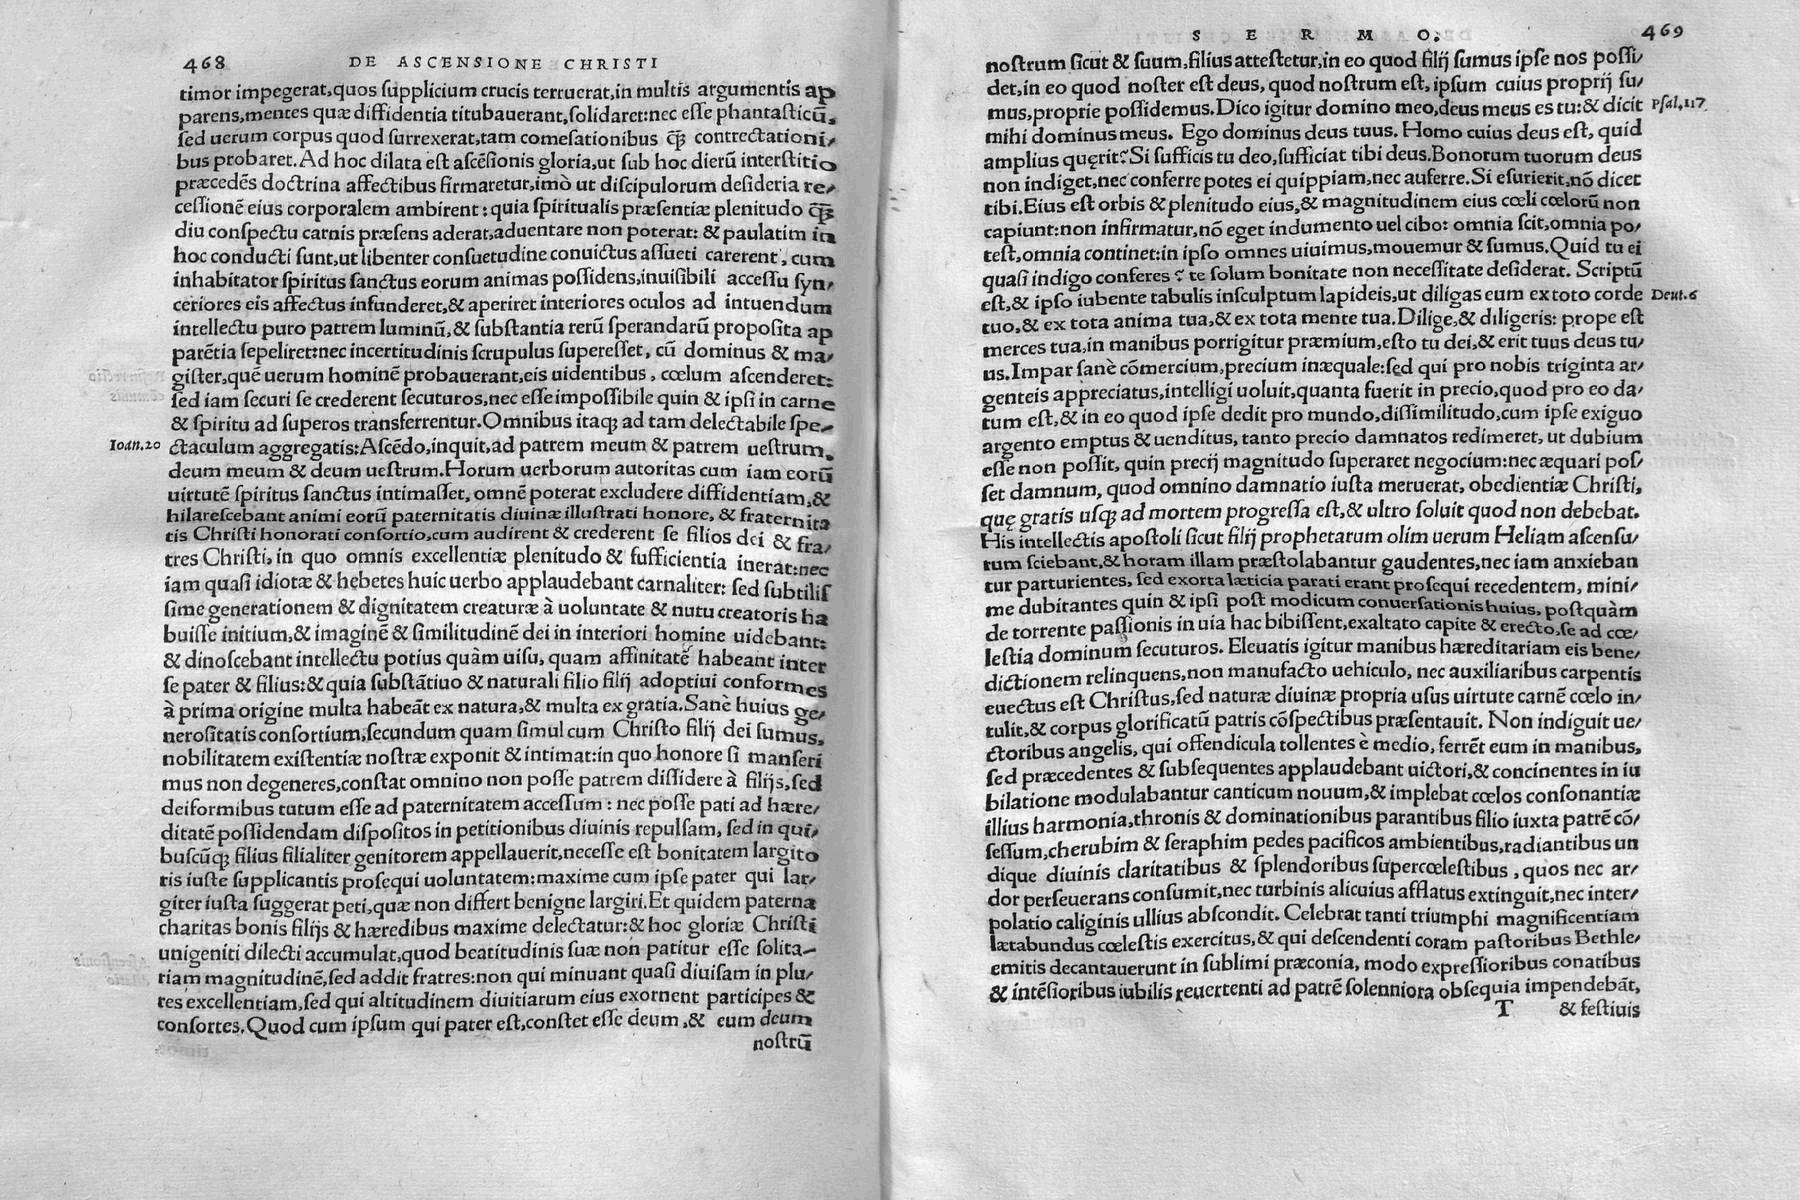 468 DE ASCENSIONE CHRISTI
timor impegerat,quos ſupplicium crucis terruerat,in multis argumentis ap
parens,mentes quæ diffidentia titubauerant,ſolidaret:nec eſſe phantaſticũ,
ſed uerum corpus quod ſurrexerat,tam comeſationibus q̃ꝫ contrectationi/
bus probaret.Ad hoc dilata eſt aſcẽſionis gloria,ut ſub hoc dierũ interſtitio
præcedẽs doctrina affectibus firmaretur,imò ut diſcipulorum deſideria re/
ceſſionẽ eius corporalem ambirent: quia ſpiritualis præſentiæ plenitudo q̃ꝫ
diu conſpectu carnis præſens aderat,aduentare non poterat: & paulatim in
hoc conducti ſunt,ut libenter conſuetudine conuictus aſſueti carerent, cum
inhabitator ſpiritus ſanctus eorum animas poſſidens,inuiſibili acceſſu ſyn/
ceriores eis affectus infunderet,& aperiret interiores oculos ad intuendum
intellectu puro patrem luminũ,& ſubſtantia rerũ ſperandarũ propoſita ap
parẽtia ſepeliret:nec incertitudinis ſcrupulus ſupereſſet, cũ dominus & ma/
giſter,quẽ uerum hominẽ probauerant,eis uidentibus, cœlum aſcenderet:
ſed iam ſecuri ſe crederent ſecuturos,nec eſſe impoſſibile quin & ipſi in carne
& ſpiritu ad ſuperos transferrentur.Omnibus itaqꝫ ad tam delectabile ſpe/
Ioan.20 ctaculum aggregatis:Aſcẽdo,inquit,ad patrem meum & patrem ueſtrum,
deum meum & deum ueſtrum.Horum uerborum autoritas cum iam eorũ
uirtutẽ ſpiritus ſanctus intimaſſet, omnẽ poterat excludere diffidentiam,&
hilareſcebant animi eorũ paternitatis diuinæ illuſtrati honore, & fraternita
tis Chriſti honorati conſortio,cum audirent & crederent ſe filios dei & fra/
tres Chriſti, in quo omnis excellentiæ plenitudo & ſufficientia inerat:nec
iam quaſi idiotæ & hebetes huic uerbo applaudebant carnaliter: ſed ſubtiliſ
ſime generationem & dignitatem creaturæ à uoluntate & nutu creatoris ha
buiſſe initium,& imaginẽ & ſimilitudinẽ dei in interiori homine uidebant:
& dinoſcebant intellectu potius quàm uiſu, quam affinitatẽ habeant inter
ſe pater & filius:& quia ſubſtãtiuo & naturali filio filij adoptiui conformes
à prima origine multa habeãt ex natura,& multa ex gratia.Sanè huius ge/
neroſitatis conſortium,ſecundum quam ſimul cum Chriſto filij dei ſumus,
nobilitatem exiſtentiæ noſtræ exponit & intimat:in quo honore ſi manſeri
mus non degeneres,conſtat omnino non poſſe patrem diſſidere à filijs,ſed
deiformibus tutum eſſe ad paternitatem acceſſum: nec poſſe pati ad hære/
ditatẽ poſſidendam diſpoſitos in petitionibus diuinis repulſam, ſed in qui/
buſcũqꝫ filius filialiter genitorem appellauerit,neceſſe eſt bonitatem largito
ris iuſte ſupplicantis proſequi uoluntatem:maxime cum ipſe pater qui lar/
giter iuſta ſuggerat peti,quæ non differt benigne largiri.Et quidem paterna
charitas bonis filijs & hæredibus maxime delectatur:& hoc gloriæ Chriſti
unigeniti dilecti accumulat,quod beatitudinis ſuæ non patitur eſſe ſolita–
riam magnitudinẽ,ſed addit fratres:non qui minuant quaſi diuiſam in plu/
res excellentiam,ſed qui altitudinem diuitiarum eius exornent participes &
conſortes.Quod cum ipſum qui pater eſt,conſtet eſſe deum,& eum deum
noſtrũ
SERMO. 469
noſtrum ſicut & ſuum,filius atteſtetur,in eo quod filij ſumus ipſe nos poſſi/
det,in eo quod noſter eſt deus, quod noſtrum eſt, ipſum cuius proprij ſu/
mus,proprie poſſidemus.Dico igitur domino meo,deus meus es tu:& dicit Pſal.117
mihi dominus meus. Ego dominus deus tuus. Homo cuius deus eſt, quid
amplius quęrit?Si ſufficis tu deo,ſufficiat tibi deus.Bonorum tuorum deus
non indiget,nec conferre potes ei quippiam,nec auferre.Si eſurierit,nõ dicet
tibi.Eius eſt orbis & plenitudo eius,& magnitudinem eius cœli cœlorũ non
capiunt:non infirmatur,nõ eget indumento uel cibo: omnia ſcit,omnia po/
teſt,omnia continet:in ipſo omnes uiuimus,mouemur & ſumus.Quid tu ei
quaſi indigo conferes? te ſolum bonitate non neceſſitate deſiderat. Scriptũ
eſt,& ipſo iubente tabulis inſculptum lapideis,ut diligas eum ex toto corde Deut.6
tuo,& ex tota anima tua,& ex tota mente tua.Dilige,& diligeris: prope eſt
merces tua,in manibus porrigitur præmium,eſto tu dei,& erit tuus deus tu/
us.Impar ſanè cõmercium,precium inæquale:ſed qui pro nobis triginta ar/
genteis appreciatus,intelligi uoluit,quanta fuerit in precio,quod pro eo da/
tum eſt,& in eo quod ipſe dedit pro mundo,diſſimilitudo,cum ipſe exiguo
argento emptus & uenditus, tanto precio damnatos redimeret, ut dubium
eſſe non poſſit, quin precij magnitudo ſuperaret negocium:nec æquari poſ/
ſet damnum, quod omnino damnatio iuſta meruerat, obedientiæ Chriſti,
quę gratis uſqꝫ ad mortem progreſſa eſt,& ultro ſoluit quod non debebat.
His intellectis apoſtoli ſicut filij prophetarum olim uerum Heliam aſcenſu/
rum ſciebant,& horam illam præſtolabantur gaudentes,nec iam anxieban
tur parturientes, ſed exorta læticia parati erant proſequi recedentem, mini/
me dubitantes quin & ipſi poſt modicum conuerſationis huius, poſtquàm
de torrente paſſionis in uia hac bibiſſent,exaltato capite & erecto,ſe ad cœ/
leſtia dominum ſecuturos. Eleuatis igitur manibus hæreditariam eis bene/
dictionem relinquens,non manufacto uehiculo, nec auxiliaribus carpentis
euectus eſt Chriſtus,ſed naturæ diuinæ propria uſus uirtute carnẽ cœlo in/
tulit,& corpus glorificatũ patris cõſpectibus præſentauit. Non indiguit ue/
ctoribus angelis, qui offendicula tollentes è medio, ferrẽt eum in manibus,
ſed præcedentes & ſubſequentes applaudebant uictori,& concinentes in iu
bilatione modulabantur canticum nouum,& implebat cœlos conſonantiæ
illius harmonia,thronis & dominationibus parantibus filio iuxta patrẽ cõ/
ſeſſum,cherubim & ſeraphim pedes pacificos ambientibus,radiantibus un
dique diuinis claritatibus & ſplendoribus ſupercœleſtibus, quos nec ar/
dor perſeuerans conſumit,nec turbinis alicuius afflatus extinguit,nec inter/
polatio caliginis ullius abſcondit. Celebrat tanti triumphi magnificentiam
lætabundus cœleſtis exercitus,& qui deſcendenti coram paſtoribus Bethle/
emitis decantauerunt in ſublimi præconia, modo expreſſioribus conatibus
& intẽſioribus iubilis reuertenti ad patrẽ ſolenniora obſequia impendebãt,
T & feſtiuis